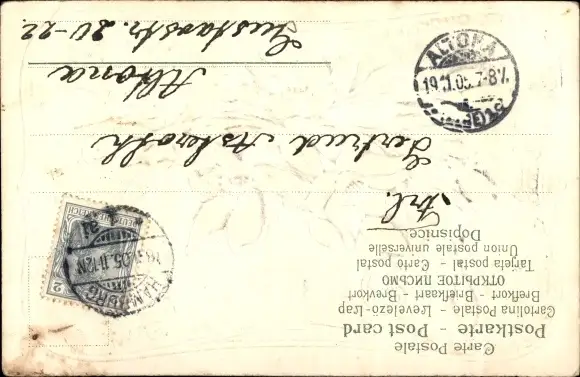 Carte Postale
Postkarte - Post card
Cartolina Postale - Levelező-Lap
Brefkort - Briefkaart - Brevkort
ОТКРЫТОЕ ПИСЬМО
Tarjeta postal - Carto postal
Union postale universelle
Dopisnice.
2
HAMBURG
05.11-12N
Frl.
Gertrud
Altona
Gustavstr. 20-22
ALTONA
19.11.05.7-8V.